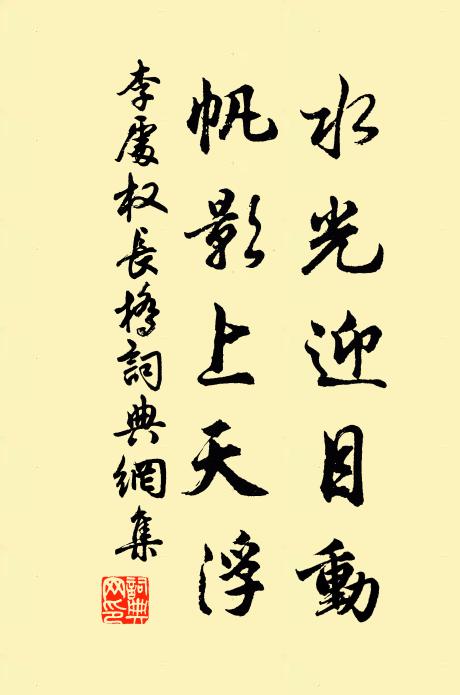 水光迎目動
帆影上天浮
李處权長橋詞典網集
詞典網印